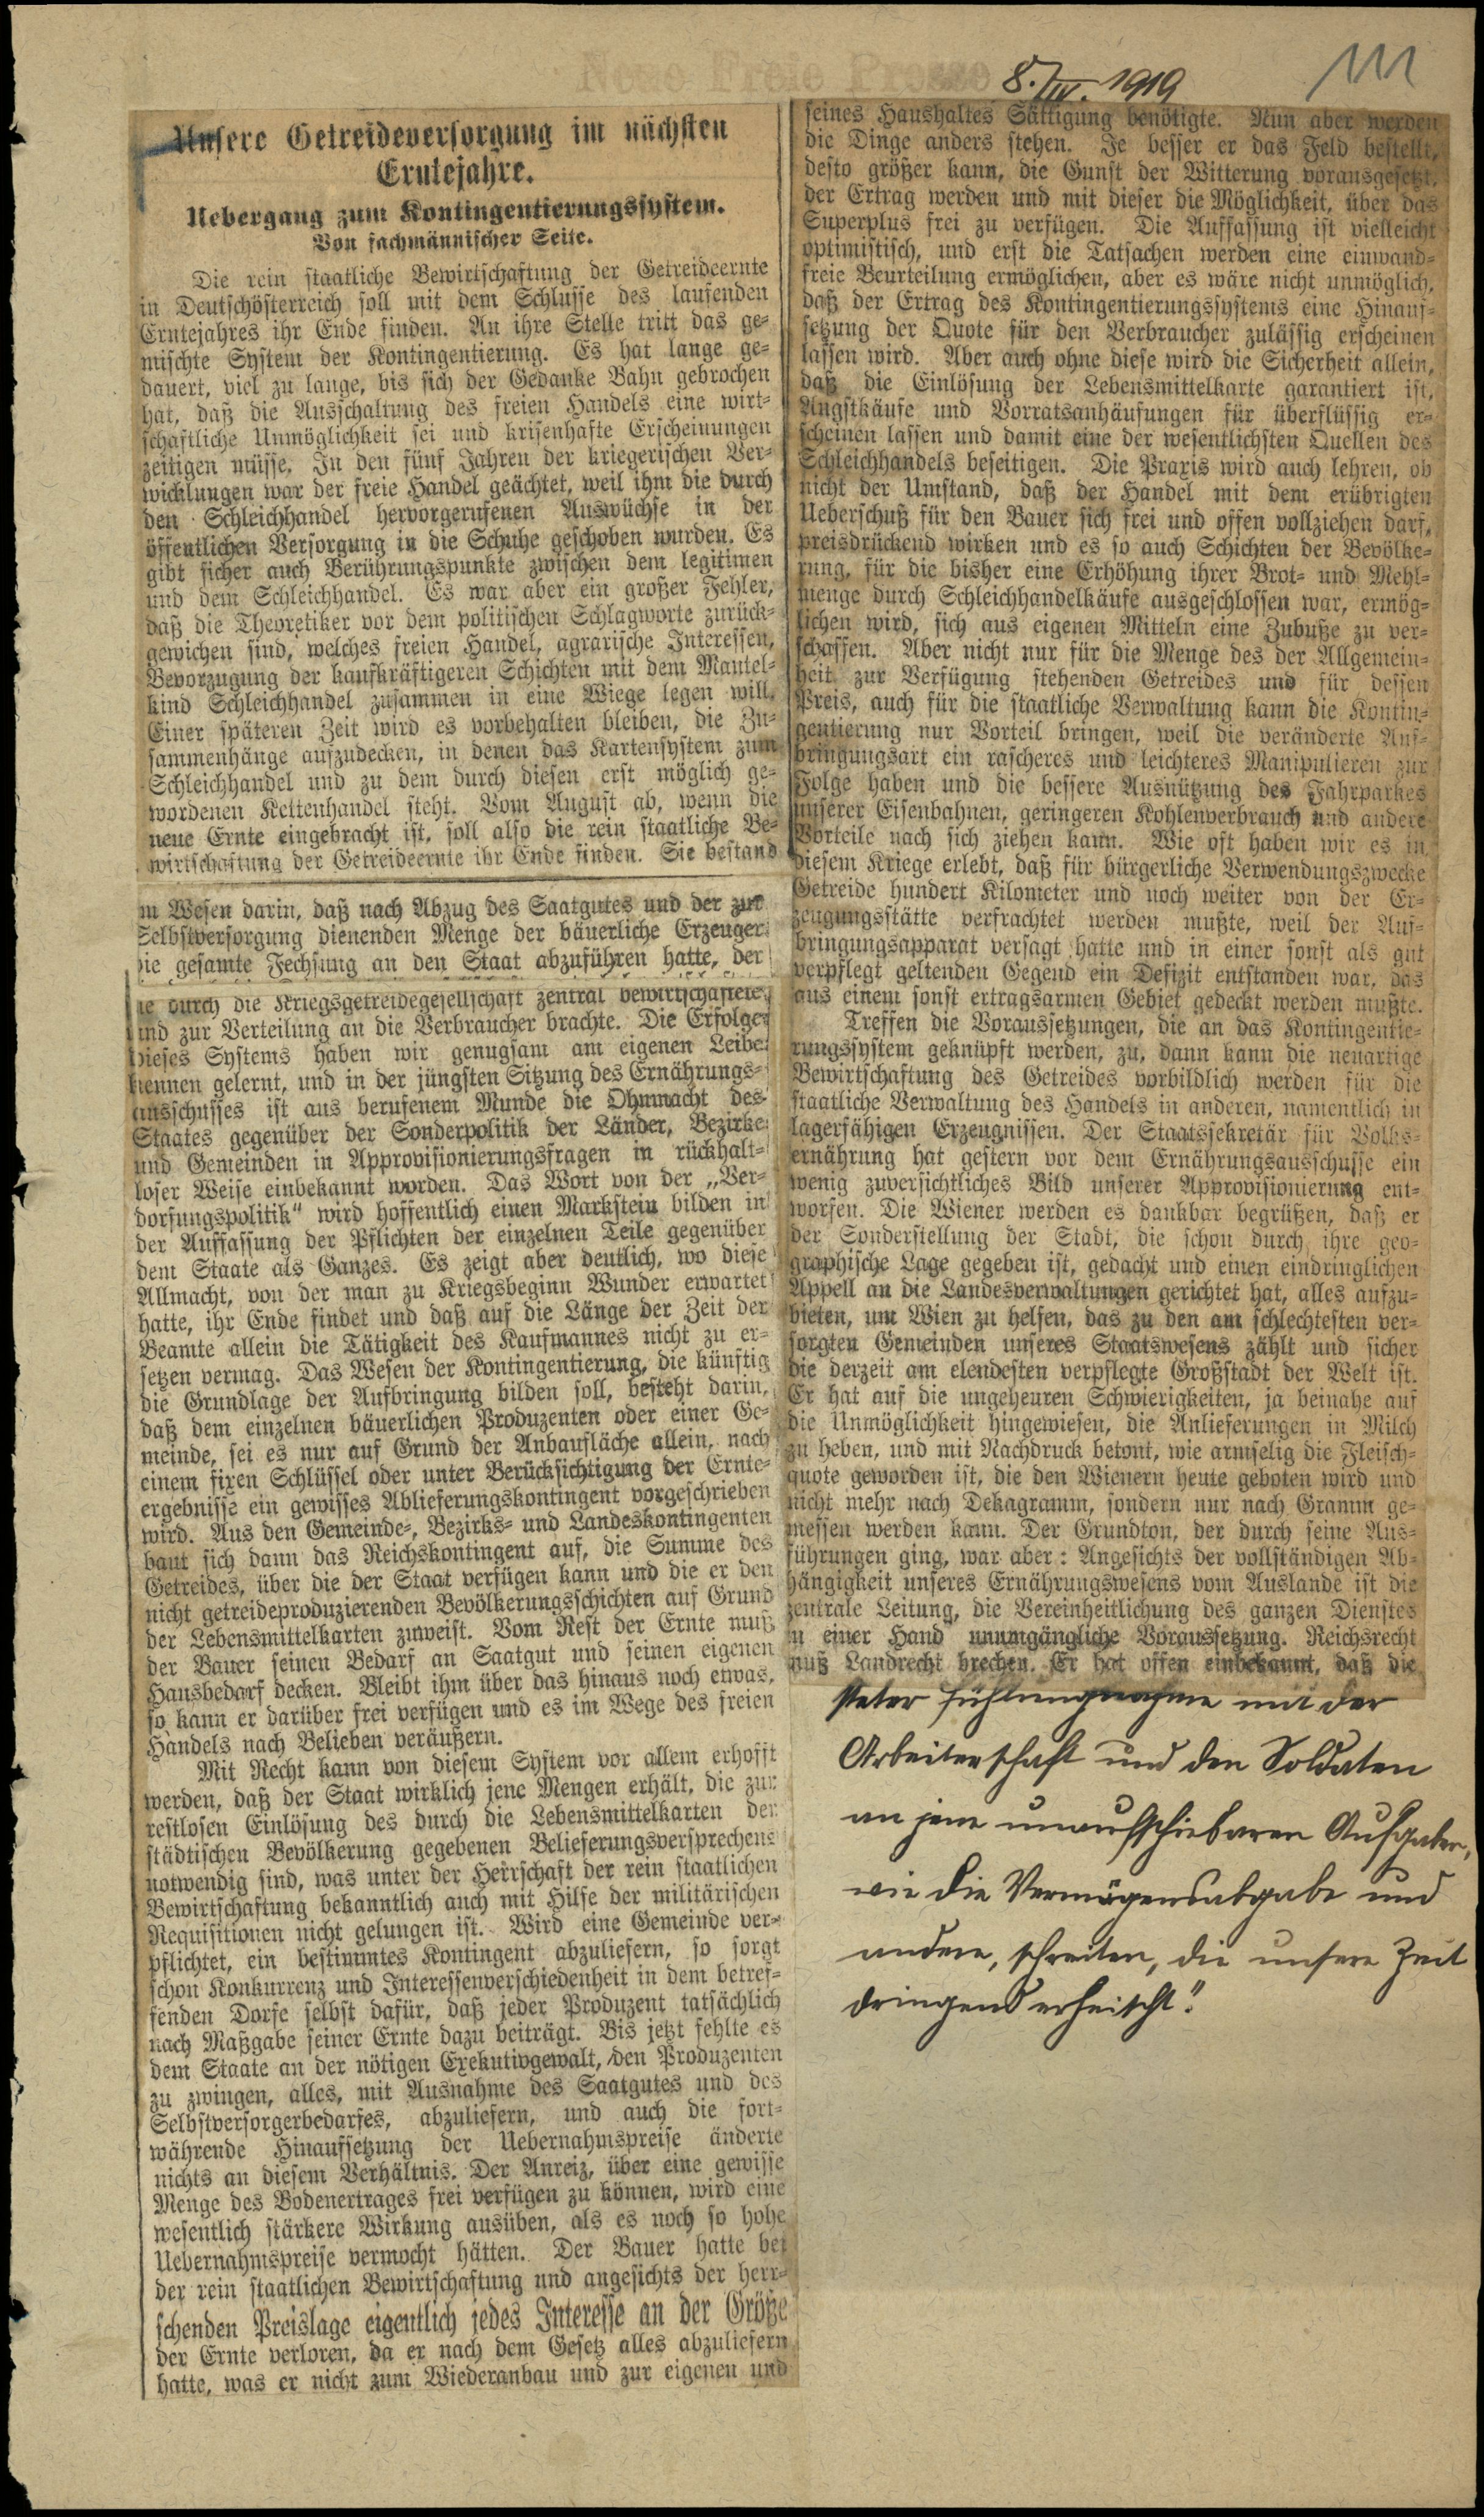 Neue Freie Presse
8./IV. 1919
111
Unsere Getreideversorgung im nächsten
Erntejahre.
Uebergang zum Kontingentierungssystem.
Von fachmännischer Seite.
Die rein staatliche Bewirtschaftung der Getreideernte
in Deutschösterreich soll mit dem Schlusse des laufenden
Erntejahres ihr Ende finden. An ihre Stelle tritt das ge-
mischte System der Kontingentierung. Es hat lange ge-
dauert, viel zu lange, bis sich der Gedanke Bahn gebrochen
hat, daß die Ausschaltung des freien Handels eine wirt-
schaftliche Unmöglichkeit sei und krisenhafte Erscheinungen
zeitigen müsse. In den fünf Jahren der kriegerischen Ver-
wicklungen war der freie Handel geächtet, weil ihm die durch
den Schleichhandel hervorgerufenen Auswüchse in der
öffentlichen Versorgung in die Schuhe geschoben wurden. Es
gibt sicher auch Berührungspunkte zwischen dem legitimen
und dem Schleichhandel. Es war aber ein großer Fehler,
daß die Theoretiker vor dem politischen Schlagworte zurück-
gewichen sind, welches freien Handel, agrarische Interessen,
Bevorzugung der kaufkräftigeren Schichten mit dem Mantel-
kind Schleichhandel zusammen in eine Wiege legen will.
Einer späteren Zeit wird es vorbehalten bleiben, die Zu-
sammenhänge aufzudecken, in denen das Kartensystem zum
Schleichhandel und zu dem durch diesen erst möglich ge-
wordenen Kettenhandel steht. Vom August ab, wenn die
neue Ernte eingebracht ist, soll also die rein staatliche Be-
wirtschaftung der Getreideernte ihr Ende finden. Sie bestand
m Wesen darin, daß nach Abzug des Saatgutes und der zur
Selbstversorgung dienenden Menge der bäuerliche Erzeuger
die gesamte Fechsung an den Staat abzuführen hatte, der
ie durch die Kriegsgetreidegesellschaft zentral bewirtschaftete
und zur Verteilung an die Verbraucher brachte. Die Erfolge
dieses Systems haben wir genugsam am eigenen Leibe
kennen gelernt, und in der jüngsten Sitzung des Ernährungs-
ausschusses ist aus berufenem Munde die Ohnmacht des
Staates gegenüber der Sonderpolitik der Länder, Bezirke
und Gemeinden in Approvisionierungsfragen in rückhalt-
loser Weise einbekannt worden. Das Wort von der „Ver-
dorfungspolitik“ wird hoffentlich einen Markstein bilden in
der Auffassung der Pflichten der einzelnen Teile gegenüber
dem Staate als Ganzes. Es zeigt aber deutlich, wo diese
Allmacht, von der man zu Kriegsbeginn Wunder erwartet
hatte, ihr Ende findet und daß auf die Länge der Zeit der
Beamte allein die Tätigkeit des Kaufmannes nicht zu er-
setzen vermag. Das Wesen der Kontingentierung, die künftig
die Grundlage der Aufbringung bilden soll, besteht darin,
daß dem einzelnen bäuerlichen Produzenten oder einer Ge-
meinde, sei es nur auf Grund der Anbaufläche allein, nach
einem fixen Schlüssel oder unter Berücksichtigung der Ernte-
ergebnisse ein gewisses Ablieferungskontingent vorgeschrieben
wird. Aus den Gemeinde-, Bezirks- und Landeskontingenten
baut sich dann das Reichskontingent auf, die Summe des
Getreides, über die der Staat verfügen kann und die er den
nicht getreideproduzierenden Bevölkerungsschichten auf Grund
der Lebensmittelkarten zuweist. Vom Rest der Ernte muß
der Bauer seinen Bedarf an Saatgut und seinen eigenen
Hausbedarf decken. Bleibt ihm über das hinaus noch etwas,
so kann er darüber frei verfügen und es im Wege des freien
Handels nach Belieben veräußern.
Mit Recht kann von diesem System vor allem erhofft
werden, daß der Staat wirklich jene Mengen erhält, die zur
restlosen Einlösung des durch die Lebensmittelkarten der
städtischen Bevölkerung gegebenen Belieferungsversprechens
notwendig sind, was unter der Herrschaft der rein staatlichen
Bewirtschaftung bekanntlich auch mit Hilfe der militärischen
Requisitionen nicht gelungen ist. Wird eine Gemeinde ver-
pflichtet, ein bestimmtes Kontingent abzuliefern, so sorgt
schon Konkurrenz und Interessenverschiedenheit in dem betref-
fenden Dorfe selbst dafür, daß jeder Produzent tatsächlich
nach Maßgabe seiner Ernte dazu beiträgt. Bis jetzt fehlte es
dem Staate an der nötigen Exekutivgewalt, den Produzenten
zu zwingen, alles, mit Ausnahme des Saatgutes und des
Selbstversorgerbedarfes, abzuliefern, und auch die fort-
währende Hinaufsetzung der Uebernahmspreise änderte
nichts an diesem Verhältnis. Der Anreiz, über eine gewisse
Menge des Bodenertrages frei verfügen zu können, wird eine
wesentlich stärkere Wirkung ausüben, als es noch so hohe
Uebernahmspreise vermocht hätten. Der Bauer hatte bei
der rein staatlichen Bewirtschaftung und angesichts der herr-
schenden Preislage eigentlich jedes Interesse an der Größe
der Ernte verloren, da er nach dem Gesetz alles abzuliefern
hatte, was er nicht zum Wiederanbau und zur eigenen und
seines Haushaltes Sättigung benötigte. Nun aber werden
die Dinge anders stehen. Je besser er das Feld bestellt,
desto größer kann, die Gunst der Witterung vorausgesetzt,
der Ertrag werden und mit dieser die Möglichkeit, über das
Superplus frei zu verfügen. Die Auffassung ist vielleicht
optimistisch, und erst die Tatsachen werden eine einwand-
freie Beurteilung ermöglichen, aber es wäre nicht unmöglich,
daß der Ertrag des Kontingentierungssystems eine Hinauf-
setzung der Quote für den Verbraucher zulässig erscheinen
lassen wird. Aber auch ohne diese wird die Sicherheit allein,
daß die Einlösung der Lebensmittelkarte garantiert ist,
Angstkäufe und Vorratsanhäufungen für überflüssig er-
scheinen lassen und damit eine der wesentlichsten Quellen des
Schleichhandels beseitigen. Die Praxis wird auch lehren, ob
nicht der Umstand, daß der Handel mit dem erübrigten
Ueberschuß für den Bauer sich frei und offen vollziehen darf,
preisdrückend wirken und es so auch Schichten der Bevölke-
rung, für die bisher eine Erhöhung ihrer Brot- und Mehl-
menge durch Schleichhandelkäufe ausgeschlossen war, ermög-
lichen wird, sich aus eigenen Mitteln eine Zubuße zu ver-
schaffen. Aber nicht nur für die Menge des der Allgemein-
heit zur Verfügung stehenden Getreides und für dessen
Preis, auch für die staatliche Verwaltung kann die Kontin-
gentierung nur Vorteil bringen, weil die veränderte Auf-
bringungsart ein rascheres und leichteres Manipulieren zur
Folge haben und die bessere Ausnützung des Fahrparkes
unserer Eisenbahnen, geringeren Kohlenverbrauch und andere
Vorteile nach sich ziehen kann. Wie oft haben wir es in
diesem Kriege erlebt, daß für bürgerliche Verwendungszwecke
Getreide hundert Kilometer und noch weiter von der Er-
zeugungsstätte verfrachtet werden mußte, weil der Auf-
bringungsapparat versagt hatte und in einer sonst als gut
verpflegt geltenden Gegend ein Defizit entstanden war, das
aus einem sonst ertragsarmen Gebiet gedeckt werden mußte.
Treffen die Voraussetzungen, die an das Kontingentie-
rungssystem geknüpft werden, zu, dann kann die neuartige
Bewirtschaftung des Getreides vorbildlich werden für die
staatliche Verwaltung des Handels in anderen, namentlich in
lagerfähigen Erzeugnissen. Der Staatssekretär für Volks-
ernährung hat gestern vor dem Ernährungsausschusse ein
wenig zuversichtliches Bild unserer Approvisionierung ent-
worfen. Die Wiener werden es dankbar begrüßen, daß er
der Sonderstellung der Stadt, die schon durch ihre geo-
graphische Lage gegeben ist, gedacht und einen eindringlichen
Appell an die Landesverwaltungen gerichtet hat, alles aufzu-
bieten, um Wien zu helfen, das zu den am schlechtesten ver-
sorgten Gemeinden unseres Staatswesens zählt und sicher
die derzeit am elendesten verpflegte Großstadt der Welt ist.
Er hat auf die ungeheuren Schwierigkeiten, ja beinahe auf
die Unmöglichkeit hingewiesen, die Anlieferungen in Milch
zu heben, und mit Nachdruck betont, wie armselig die Fleisch-
quote geworden ist, die den Wienern heute geboten wird und
nicht mehr nach Dekagramm, sondern nur nach Gramm ge-
messen werden kann. Der Grundton, der durch seine Aus-
führungen ging, war aber: Angesichts der vollständigen Ab-
hängigkeit unseres Ernährungswesens vom Auslande ist die
zentrale Leitung, die Vereinheitlichung des ganzen Dienstes
n einer Hand unumgängliche Voraussetzung. Reichsrecht
muß Landrecht brechen. Er hat offen einbekannt, daß die
steter Fühlungnahme mit der
Arbeiterschaft und den Soldaten
an jene unaufschiebbaren Aufgaben,
wie die Vermögensabgabe und
andere, schreiten, die unsere Zeit
dringend erheischt."